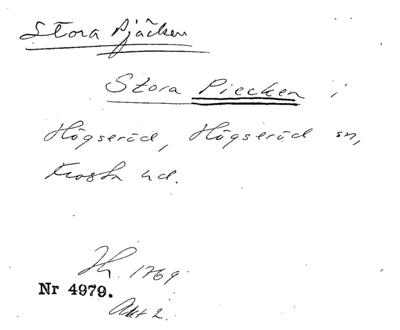 Stora Pjäcken
Stora Piecken i
Högseröd, Högseröd sn,
Frosta hd.
Jh. 1769
Nr 4979.
Akt 2.